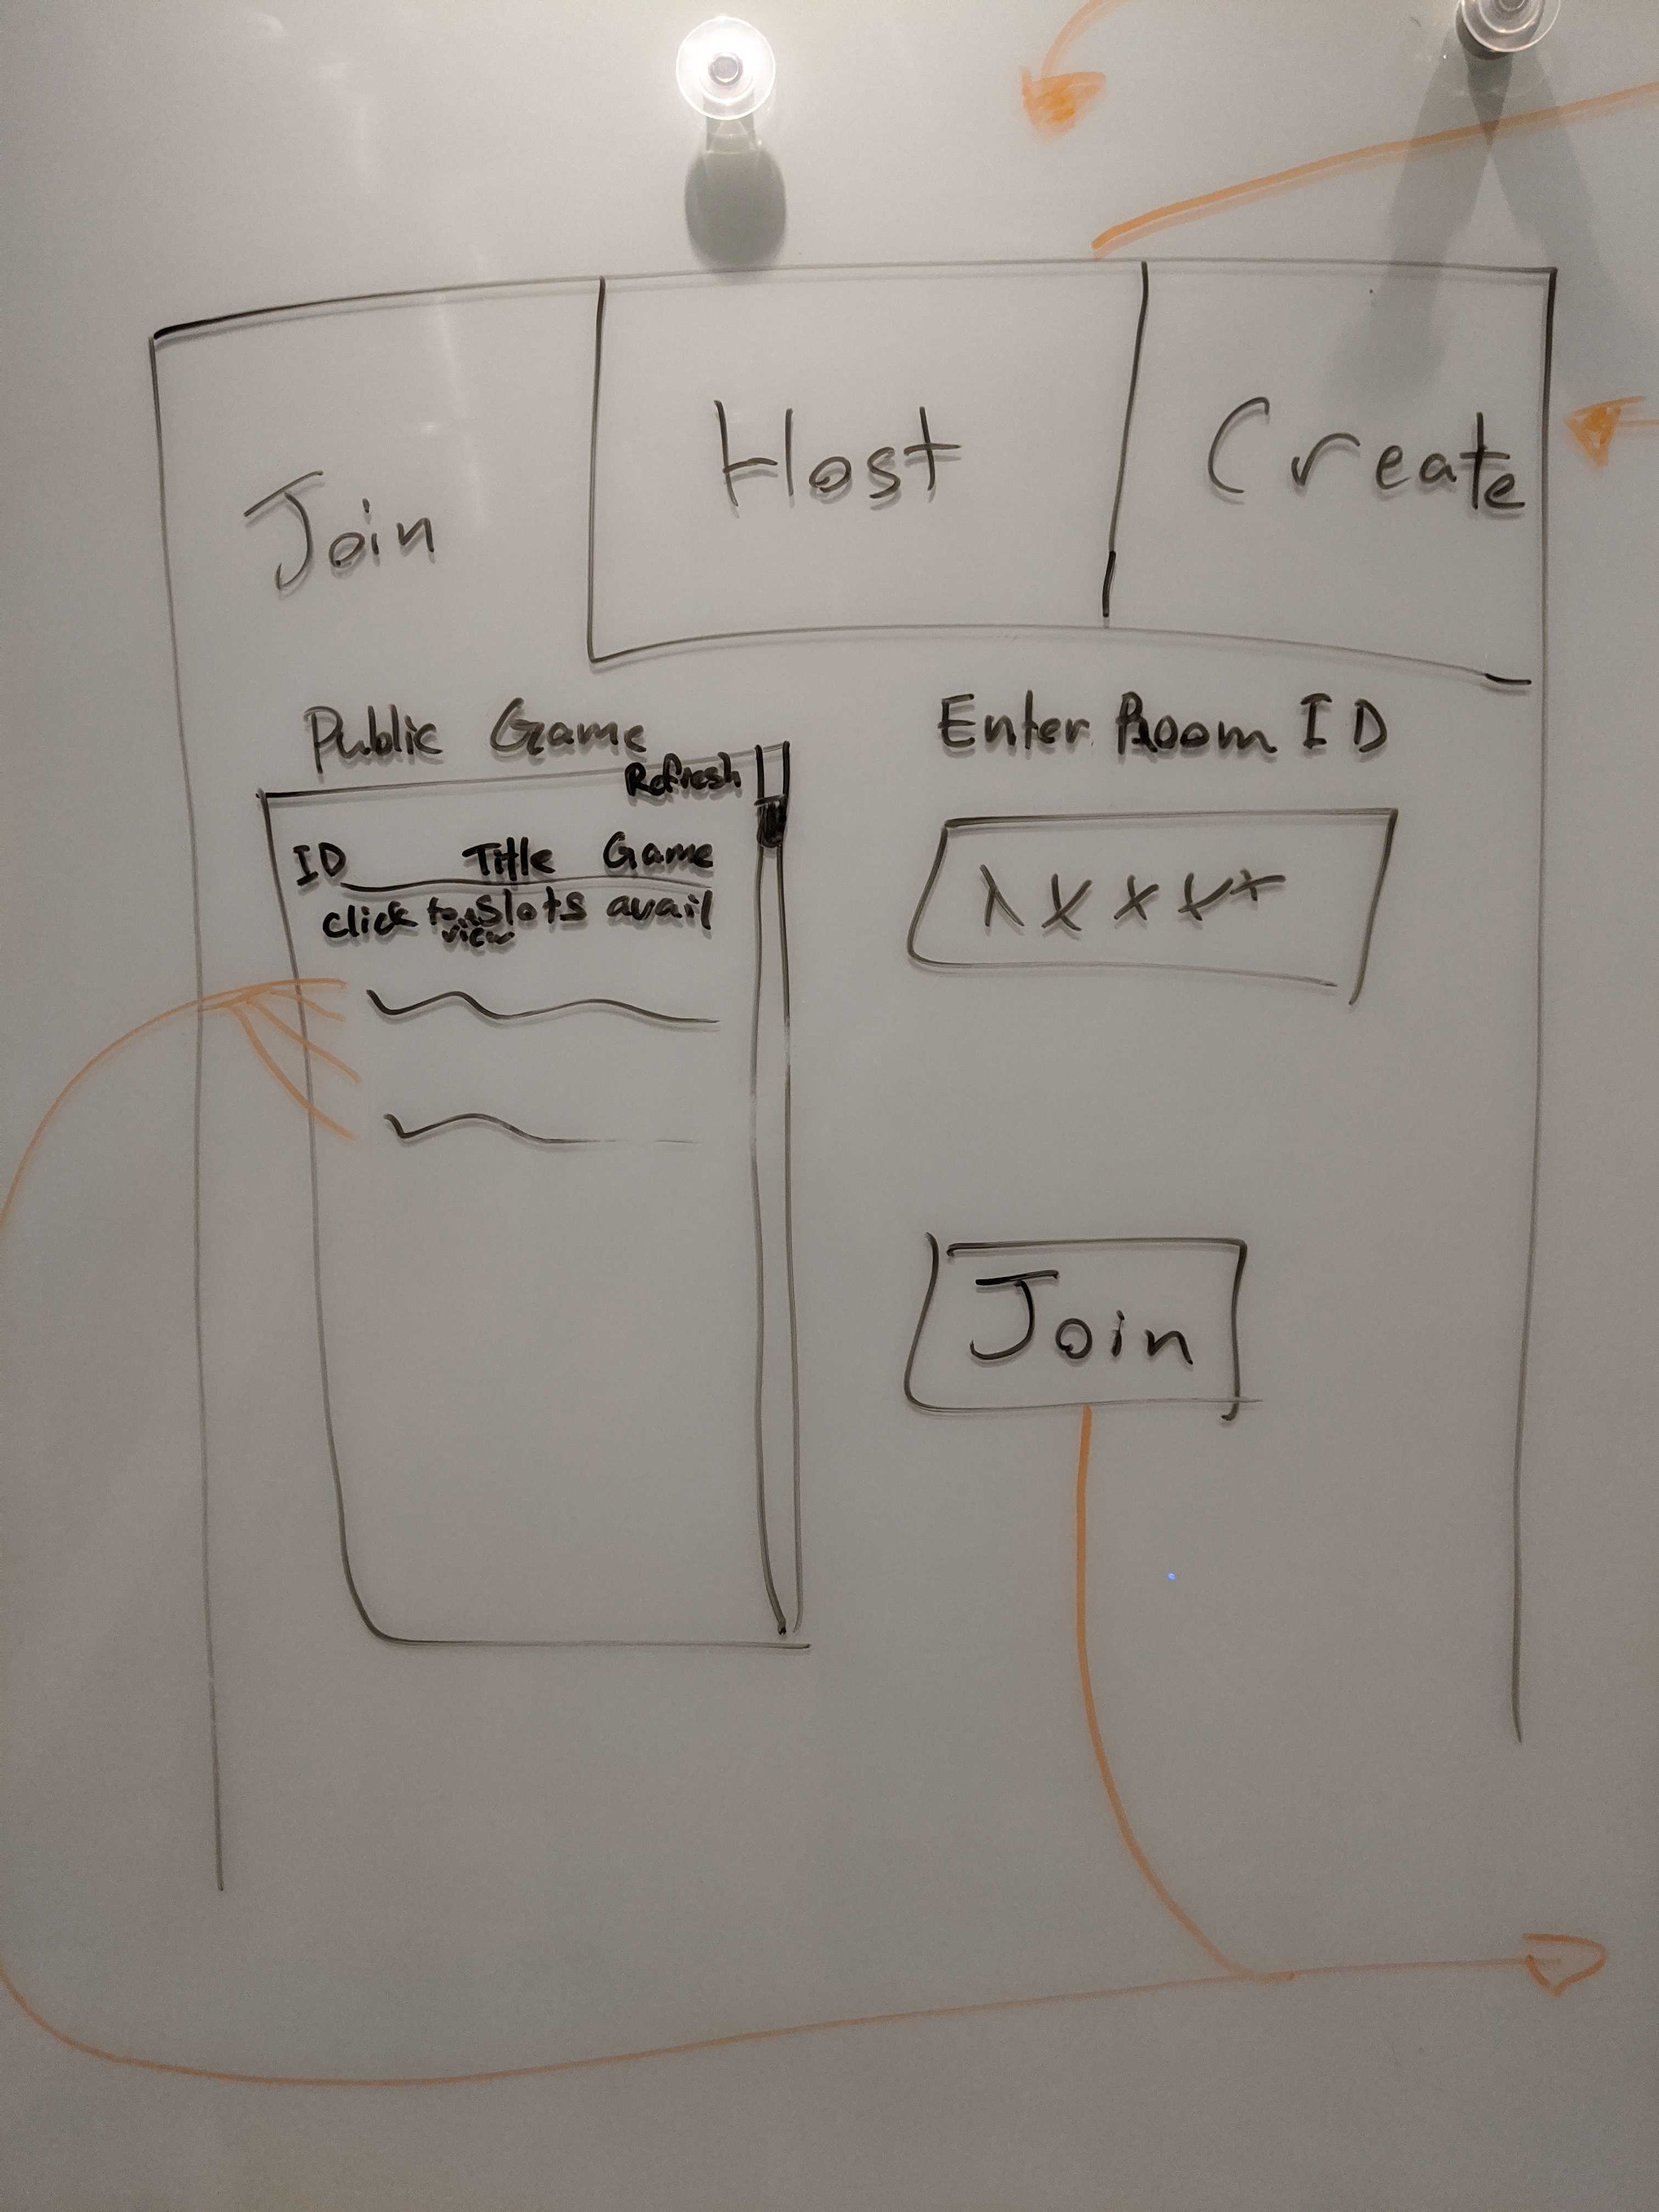 Join Host Create
Public Game
Refresh
ID Title Game
click to view slots avail
Enter Room ID
XXXXX
Join